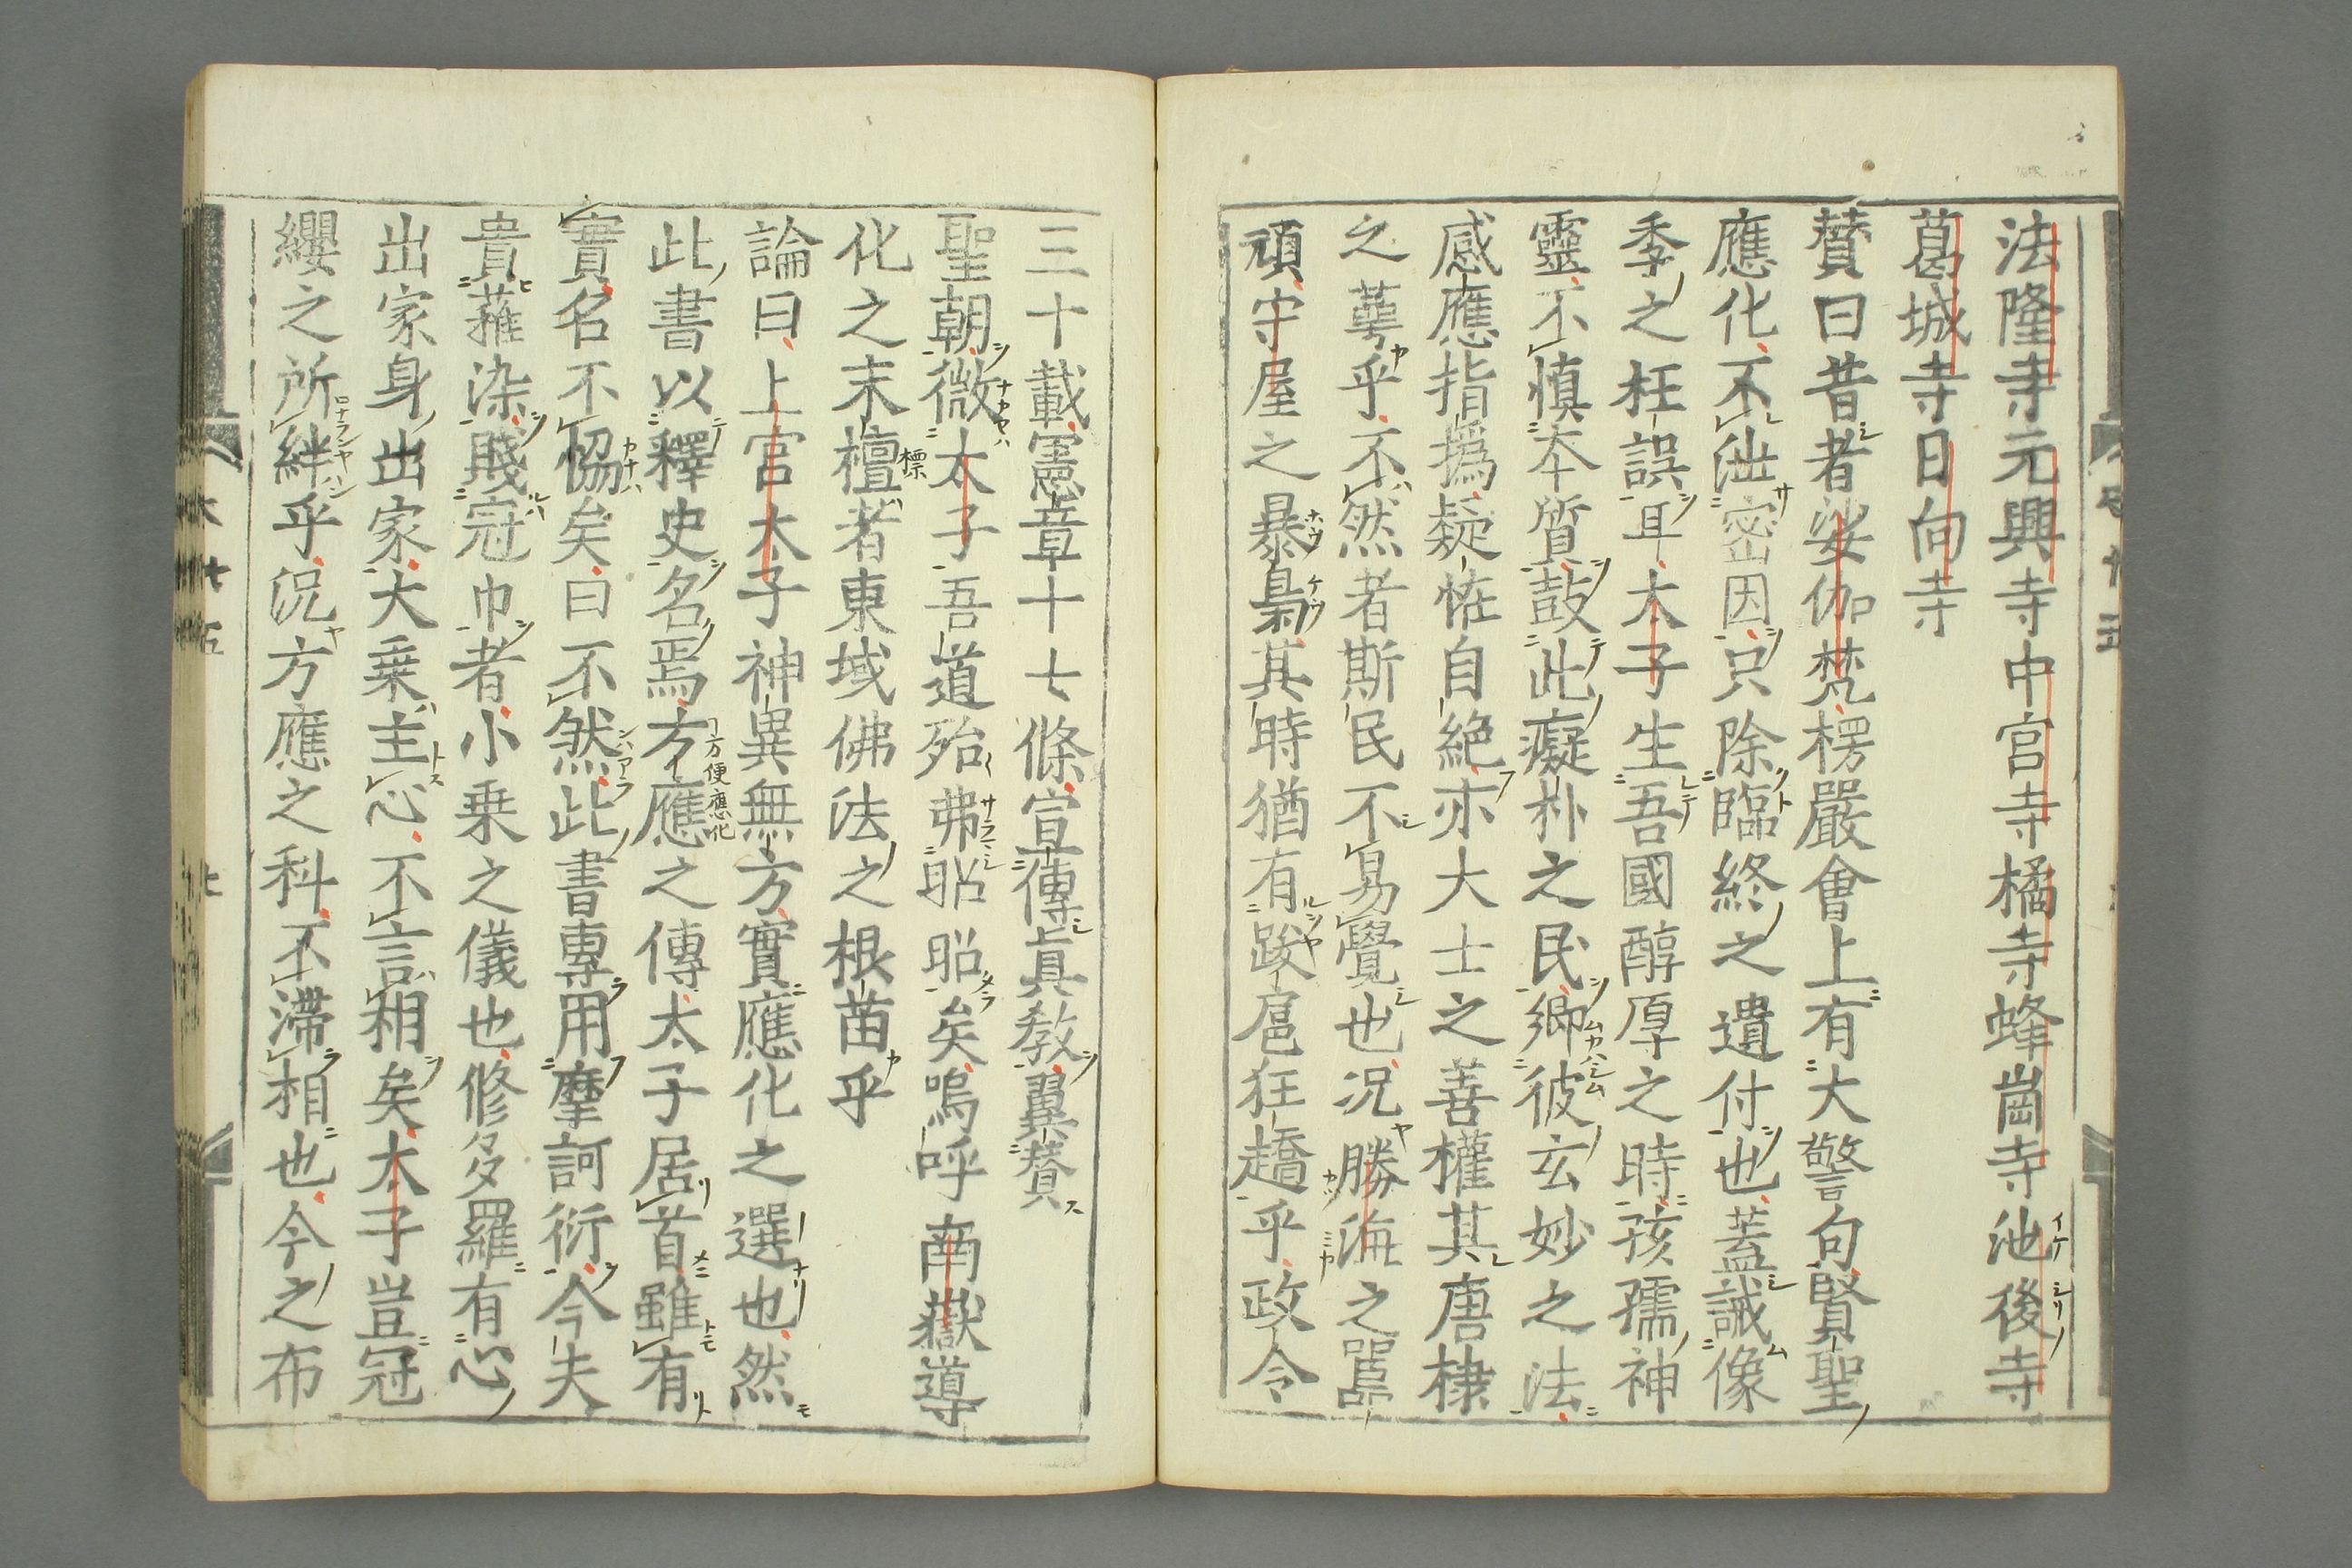 法隆寺元興寺中宮寺橘寺蜂崗寺池後寺
葛城寺日向寺
賛曰昔者娑伽梵楞嚴會上有大警句賢聖
應化不泄密因只除臨終之遺付也蓋誡像
季之枉誤耳太子生吾國醇厚之時孩孺神
靈不慎本質鼓此癡朴之民鄉彼玄妙之法
感應指撝疑恠自絶亦大士之善權其唐棣
之蕚乎不然者斯民不易覺也況勝海之嚚
頑守屋之暴梟其時猶有跋扈狂趫乎政令
三十載憲章十七條宣傳眞教翼賛
聖朝微太子吾道殆弗昭昭矣嗚呼南嶽導
化之末檀者東域佛法之根苗乎
論曰上官太子神異無方實應化之選也然
此書以釋史名焉方應之傳太子居首雖有
實名不恊矣曰不然此書專用摩訶衍今夫
貴薙染賤冠巾者小乗之儀也修多羅有心
出家身出家大乗主心不言相矣太子豈冠
纓之所絆乎況方應之科不滯相也今之布